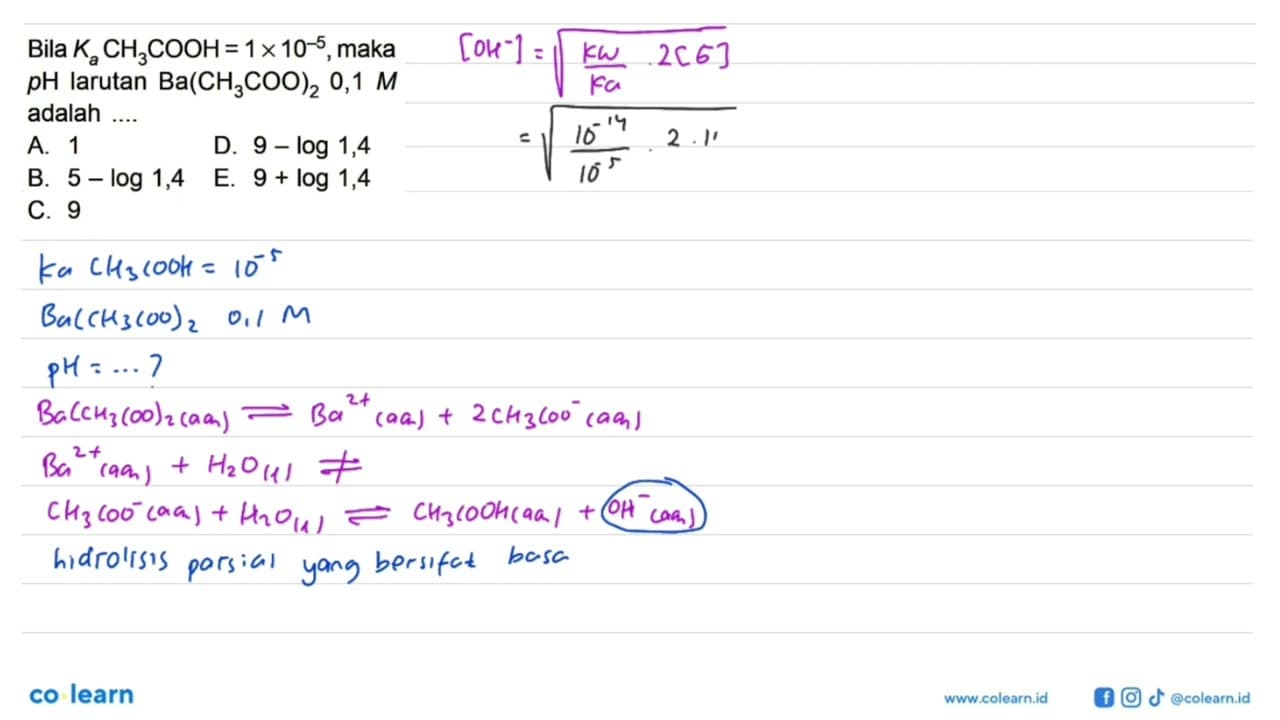 Bila Kₐ CH₃COOH = 1 × 10⁻⁵, maka
pH larutan Ba(CH₃COO)₂ 0,1 M
adalah ....
A. 1 D. 9 – log 1,4
B. 5 – log 1,4 E. 9 + log 1,4
C. 9
[OH⁻] = √(kw/ka . 2[G])
= √(10⁻¹⁴/10⁻⁵ . 2 .
ka CH₃COOH = 10⁻⁵
Ba(CH₃COO)₂ 0,1 M
pH = ... ?
Ba(CH₃COO)₂(aq) ⇌ Ba²⁺(aq) + 2CH₃COO⁻(aq)
Ba²⁺(aq) + H₂O(l) ⇌̸
CH₃COO⁻(aq) + H₂O(l) ⇌ CH₃COOH(aq) + OH⁻(aq)
hidrolisis parsial yang bersifat basa
co learn
www.colearn.id
@colearn.id